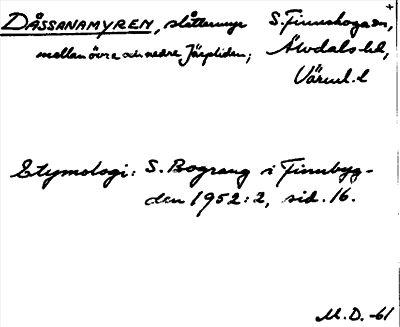 DÅSSANAMYREN, slåttermyr S. Finnskoga sn,
mellan övre och nedre Järpliden; Älvdals hd,
Värml. l
Etymologi: S. Bograng i Finnbyg-
den 1952:2, sid. 16.
M.D. -61